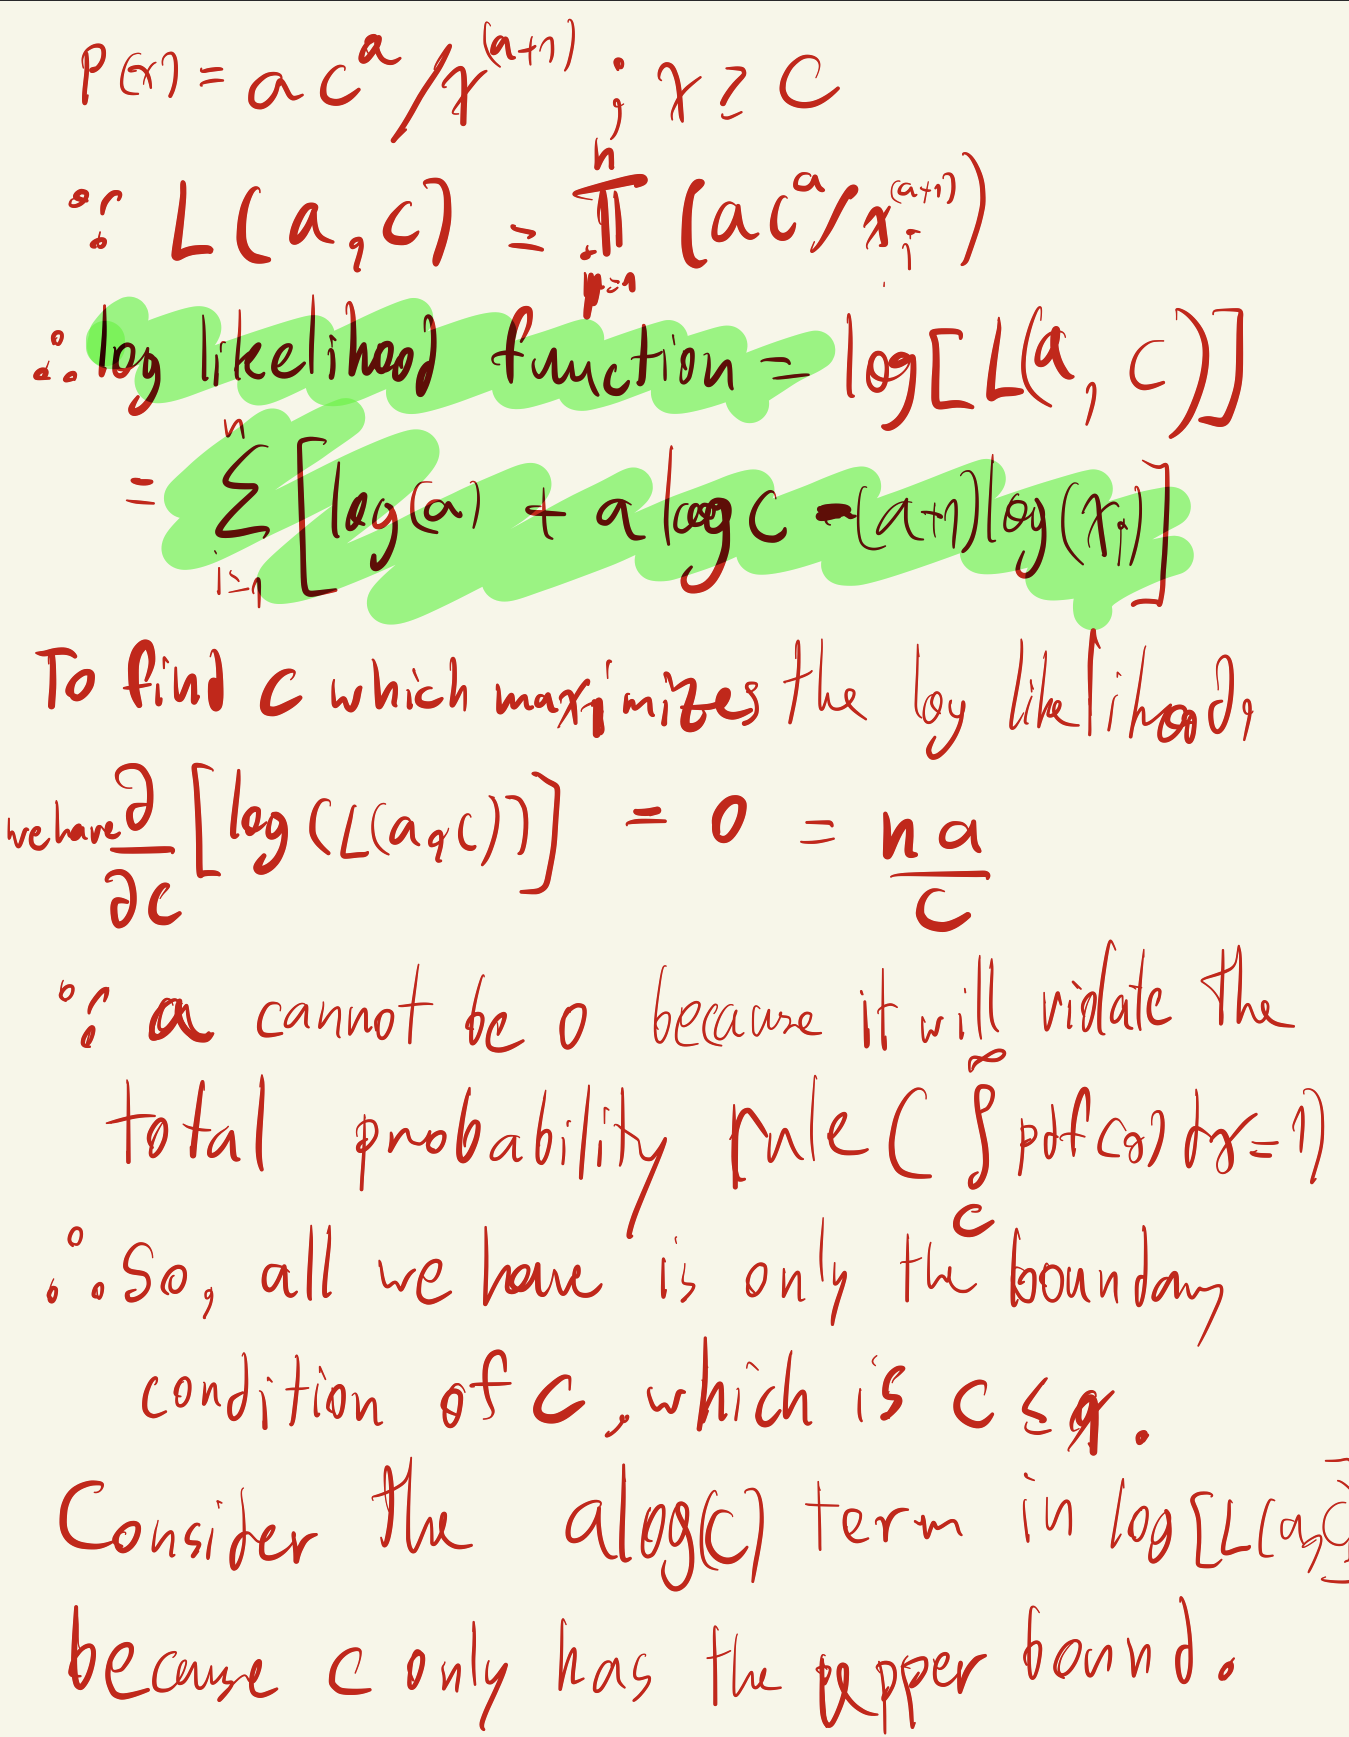 P(x) = a c^a / x^(a+1) ; x ≥ c
∵ L(a, c) = ∏_{i=1}^{n} (a c^a / x_i^(a+1))
∴ log likelihood function = log[L(a, c)]
= Σ_{i=1}^{n} [log(a) + a log c - (a+1) log(x_i)]
To find c which maximizes the log likelihood,
we have ∂/∂c [log(L(a, c))] = 0 = na/c
∵ a cannot be 0 because it will violate the
total probability rule (∫_c^∞ pdf(x) dx = 1)
∴ So, all we have is only the boundary
condition of c, which is c ≤ x.
Consider the alog(c) term in log[L(a, c)]
because c only has the upper bound.